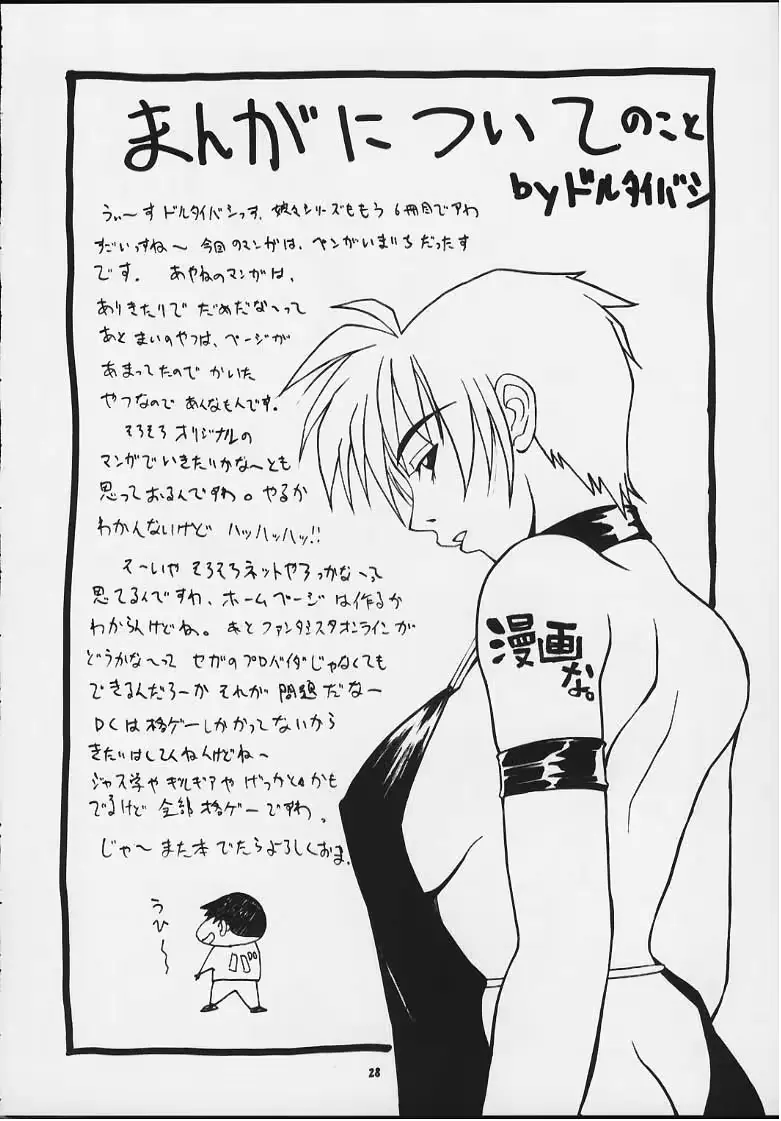 まんがについてのこと
byドルタイバシ
うぃ〜すドルタイバシっす、娘々シリーズももう6冊目でアわ
すごいっすね〜今回のマンガは、ペンがいまいちだったす
です。あやねのマンガは、
ありきたりでだめだな〜って
あとまいのやつは、ページが
あまってたのでかいた
やつなのであんなもんです。
そろそろオリジナルの
マンガでいきたいかな〜とも
思っておるんですわ。やるか
わかんないけどハッハッハッ!!
そ〜いやそろそろネットやろっかな〜って
思てるんですわ、ホームページは作るか
わからんけどね。あとファンタシースタオンラインが
どうかな〜ってセガのプロバイダじゃなくても
できるんだろーかそれが問題だなー
DCは格ゲーしかかってないから
きたいはしてんねんけどね〜
ジャス学やギルギアやげっかとかも
でるけど全部格ゲーですわ。
じゃ〜また本でたらよろしくおま。
漫画
な。
うひ〜〜
28